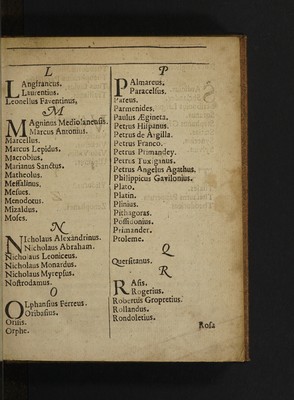 L
LAngfrancus.
Laurentius.
Leonellus Faventinus,
M
MAgninus Mediolanensis.
Marcus Antonius.
Marcellus.
Marcus Lepidus.
Macrobius.
Marianus Sanctus.
Matheolus.
Messalinus,
Mesues.
Menodotus.
Mizaldus.
Moses.
N
NIcholaus Alexandrinus.
Nicholaus Abraham.
Nicholaus Leoniceus.
Nicholaus Monardus.
Nicholaus Myrepsus.
Nostrodamus.
O
OLphansius Ferreus.
Oribasius.
Orius.
Orphe.
P
PAlmareus.
Paracelsus.
Pateus.
Parmenides,
Paulus Ægineta.
Petrus Hispanus.
Petrus de Argilla.
Petrus Franco.
Petrus Primandey.
Petrus Tuxiganus.
Petrus Angelus Agathus.
Philippicus Gavilonius.
Plato.
Platin.
Plinius.
Pithagoras.
Possidonius.
Primander.
Ptoleme.
Q
Quersitanus.
R
RAsis.
Rogerius.
Robertus Gropretius.
Rollandus.
Rondoletius.
Rosa